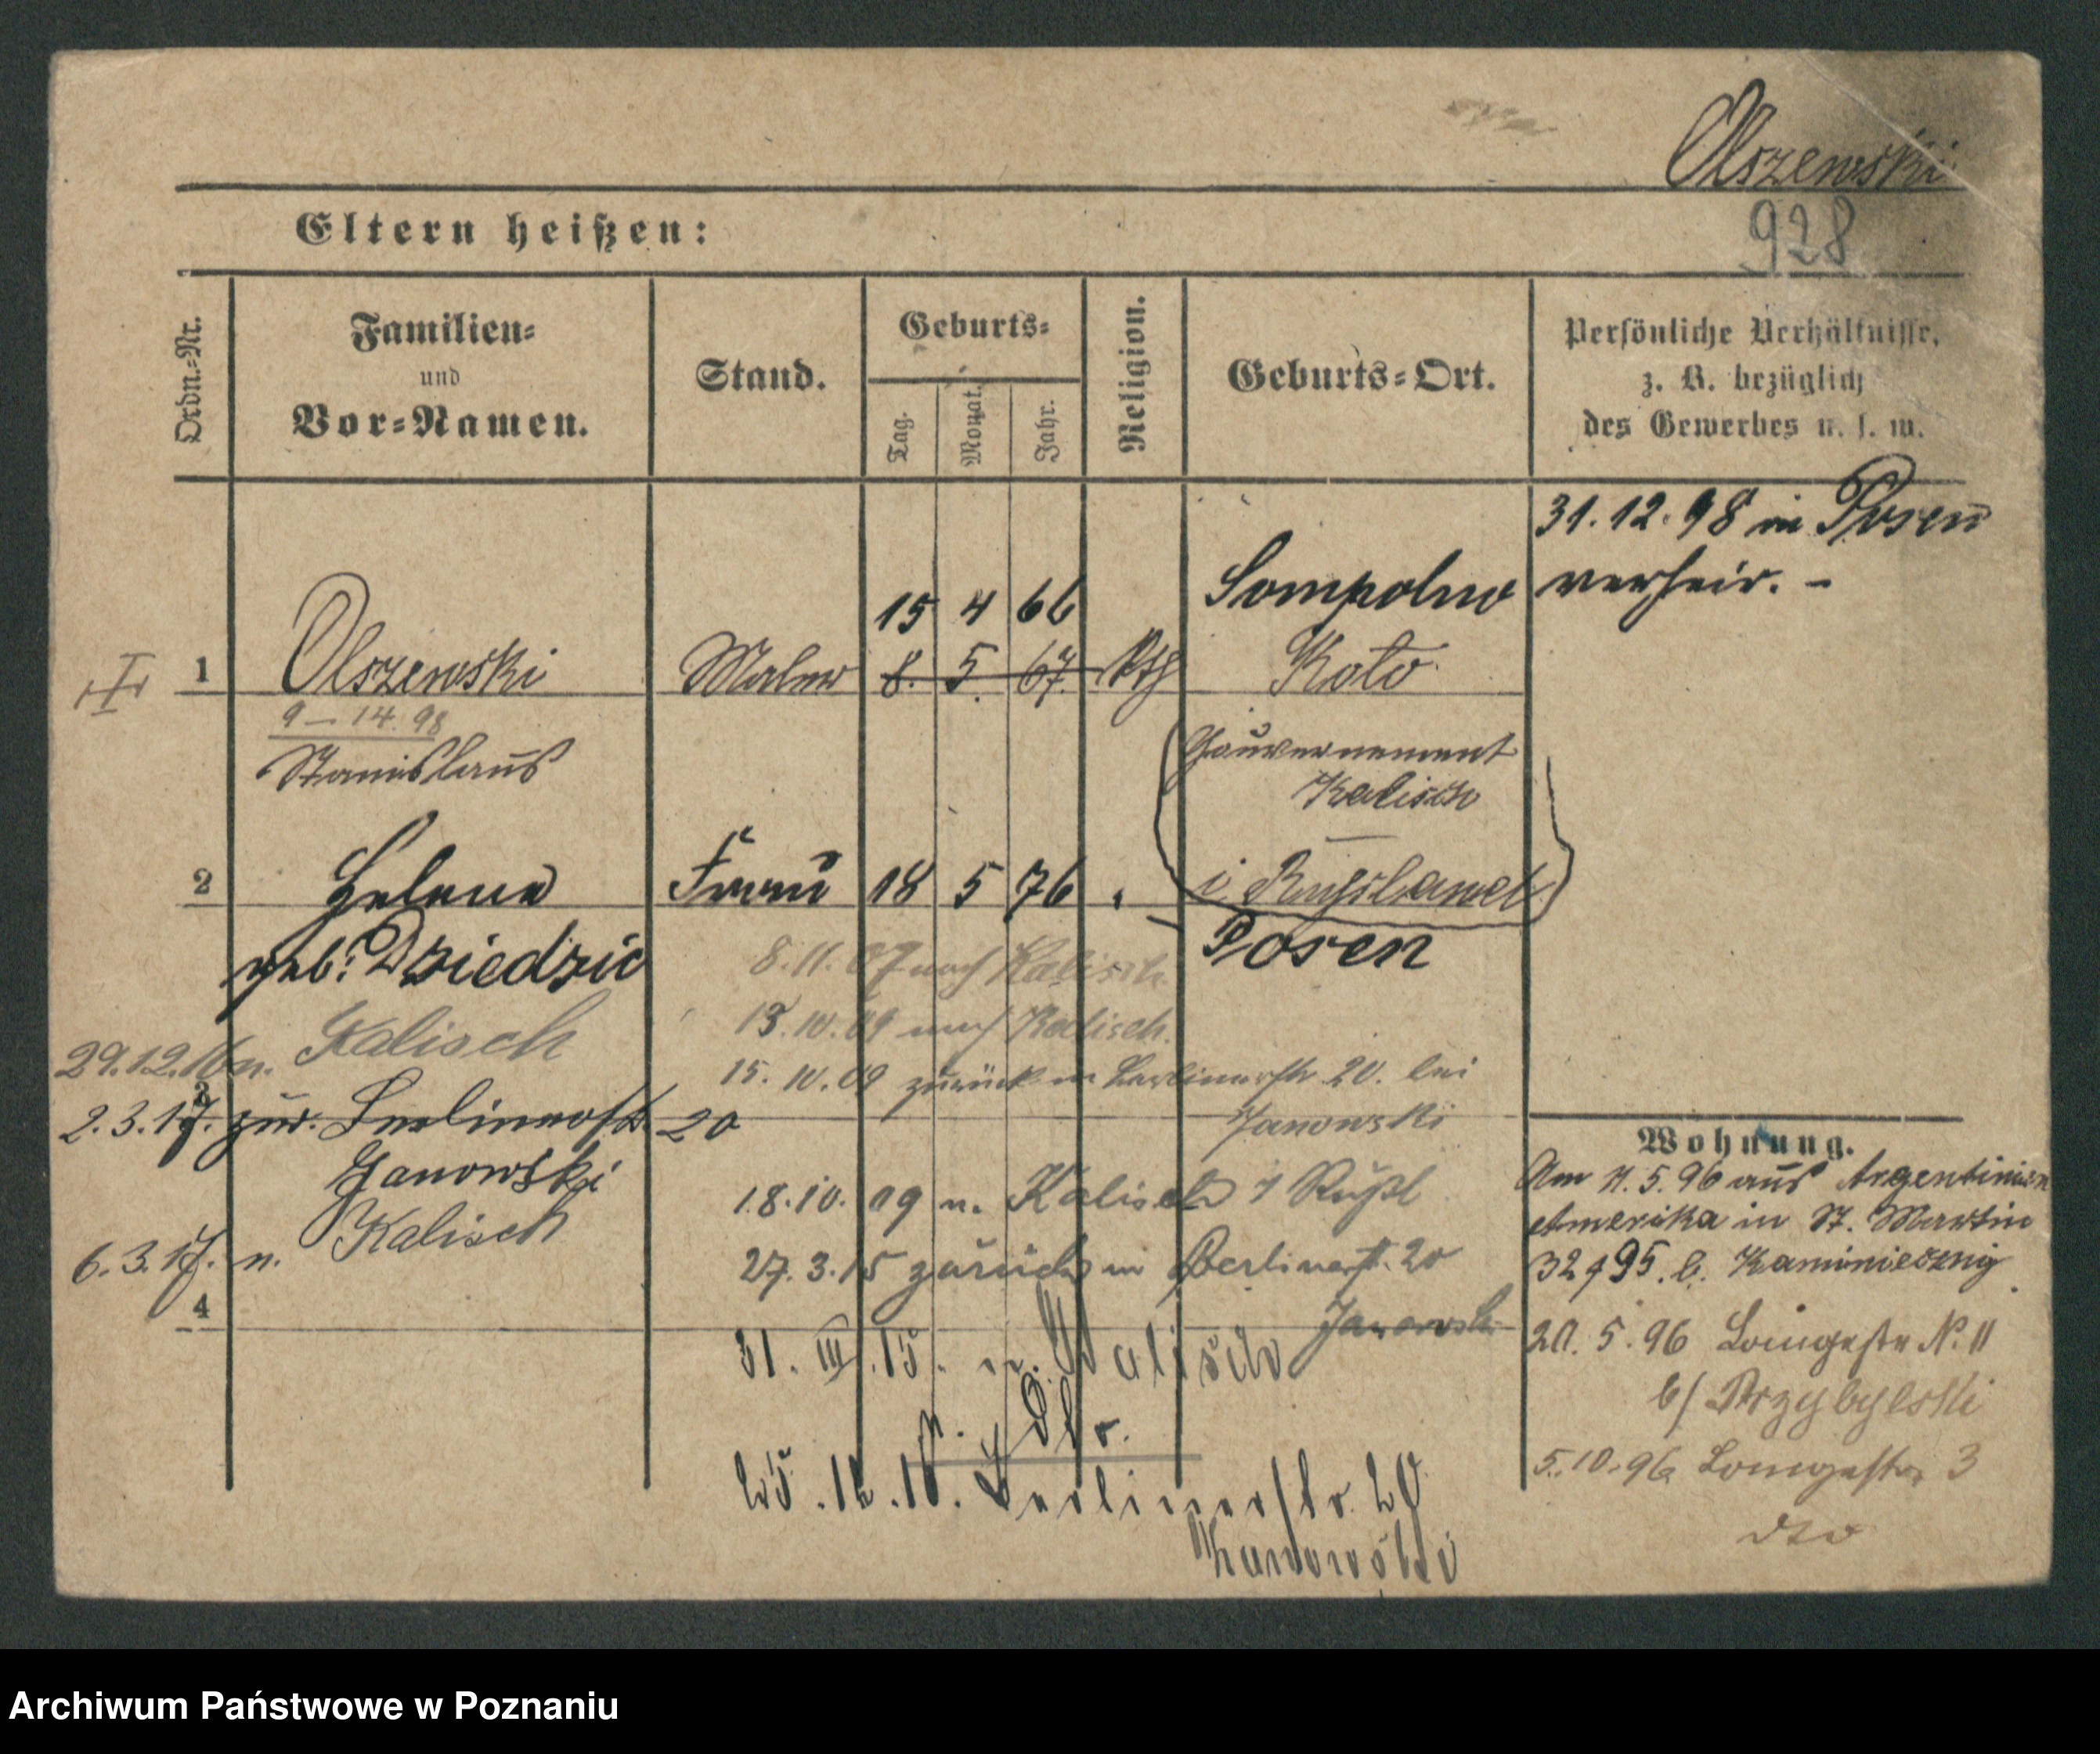 Olszewski
928
Eltern heißen:
Ordn.-Nr.
Familien-
und
Vor-Namen.
Stand.
Geburts-
Tag.
Monat.
Jahr.
Religion.
Geburts-Ort.
Persönliche Verhältnisse,
z. B. bezüglich
des Gewerbes u. s. w.
31.12.98 in Posen
verheir. -
15 4 66 Sompolno
1 Olszewski Maler 8. 5. 67. Kth Koło
9-14.98
Stanislaus
Gouvernement
Kalisch
i Russland
2 Helena Frau 18 5 76 Posen
geb. Dziedzic
8.11.07 nach Kalisch
13.10.09 nach Kalisch.
29.12.16 n. Kalisch
15.10.09 zurück in Berlinerstr 20. bei
Janowski
3
2.3.17. zur. Berlinerstr 20
Janowski
18.10.09 n. Kalisch i Rußl
6.3.17. n. Kalisch
27.3.15 zurück in Berlinerstr. 20
Janowski
4
31.III.15. n. Kalisch
25.12.16. Berlinerstr. 20
Janowski
Wohnung.
Am 11.5.96 aus Argentinien
Amerika in St. Martin
32/95. b.
20.5.96 Langestr No. 11
b/ Przybylski
5.10.96 Langestr. 3
dto
Archiwum Państwowe w Poznaniu